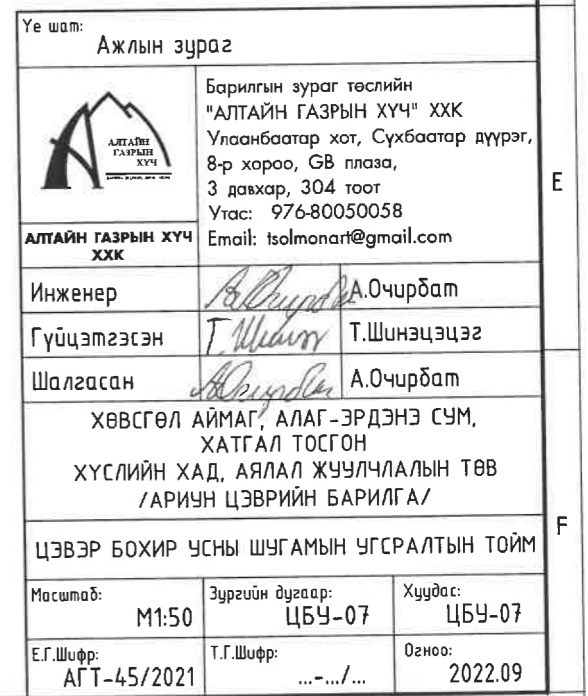 Үе шат:
Ажлын зураг
АЛТАЙН
ГАЗРЫН
ХҮЧ
АЛТАЙН ГАЗРЫН ХҮЧ
ХХК
Барилгын зураг төслийн
"АЛТАЙН ГАЗРЫН ХҮЧ" ХХК
Улаанбаатар хот, Сүхбаатар дүүрэг,
8-р хороо, GB плаза,
3 давхар, 304 тоот
Утас: 976-80050058
Email: tsolmonart@gmail.com
E
Инженер А.Очирбат
Гүйцэтгэсэн Т.Шинэцэцэг
Шалгасан А.Очирбат
ХӨВСГӨЛ АЙМАГ, АЛАГ-ЭРДЭНЭ СУМ,
ХАТГАЛ ТОСГОН
ХҮСЛИЙН ХАД, АЯЛАЛ ЖУУЛЧЛАЛЫН ТӨВ
/АРИУН ЦЭВРИЙН БАРИЛГА/
F
ЦЭВЭР БОХИР УСНЫ ШУГАМЫН УГСРАЛТЫН ТОЙМ
Масштаб: Зургийн дугаар: Хуудас:
М1:50 ЦБУ-07 ЦБУ-07
Е.Г.Шифр: Т.Г.Шифр: Огноо:
АГТ-45/2021 ...-.../... 2022.09